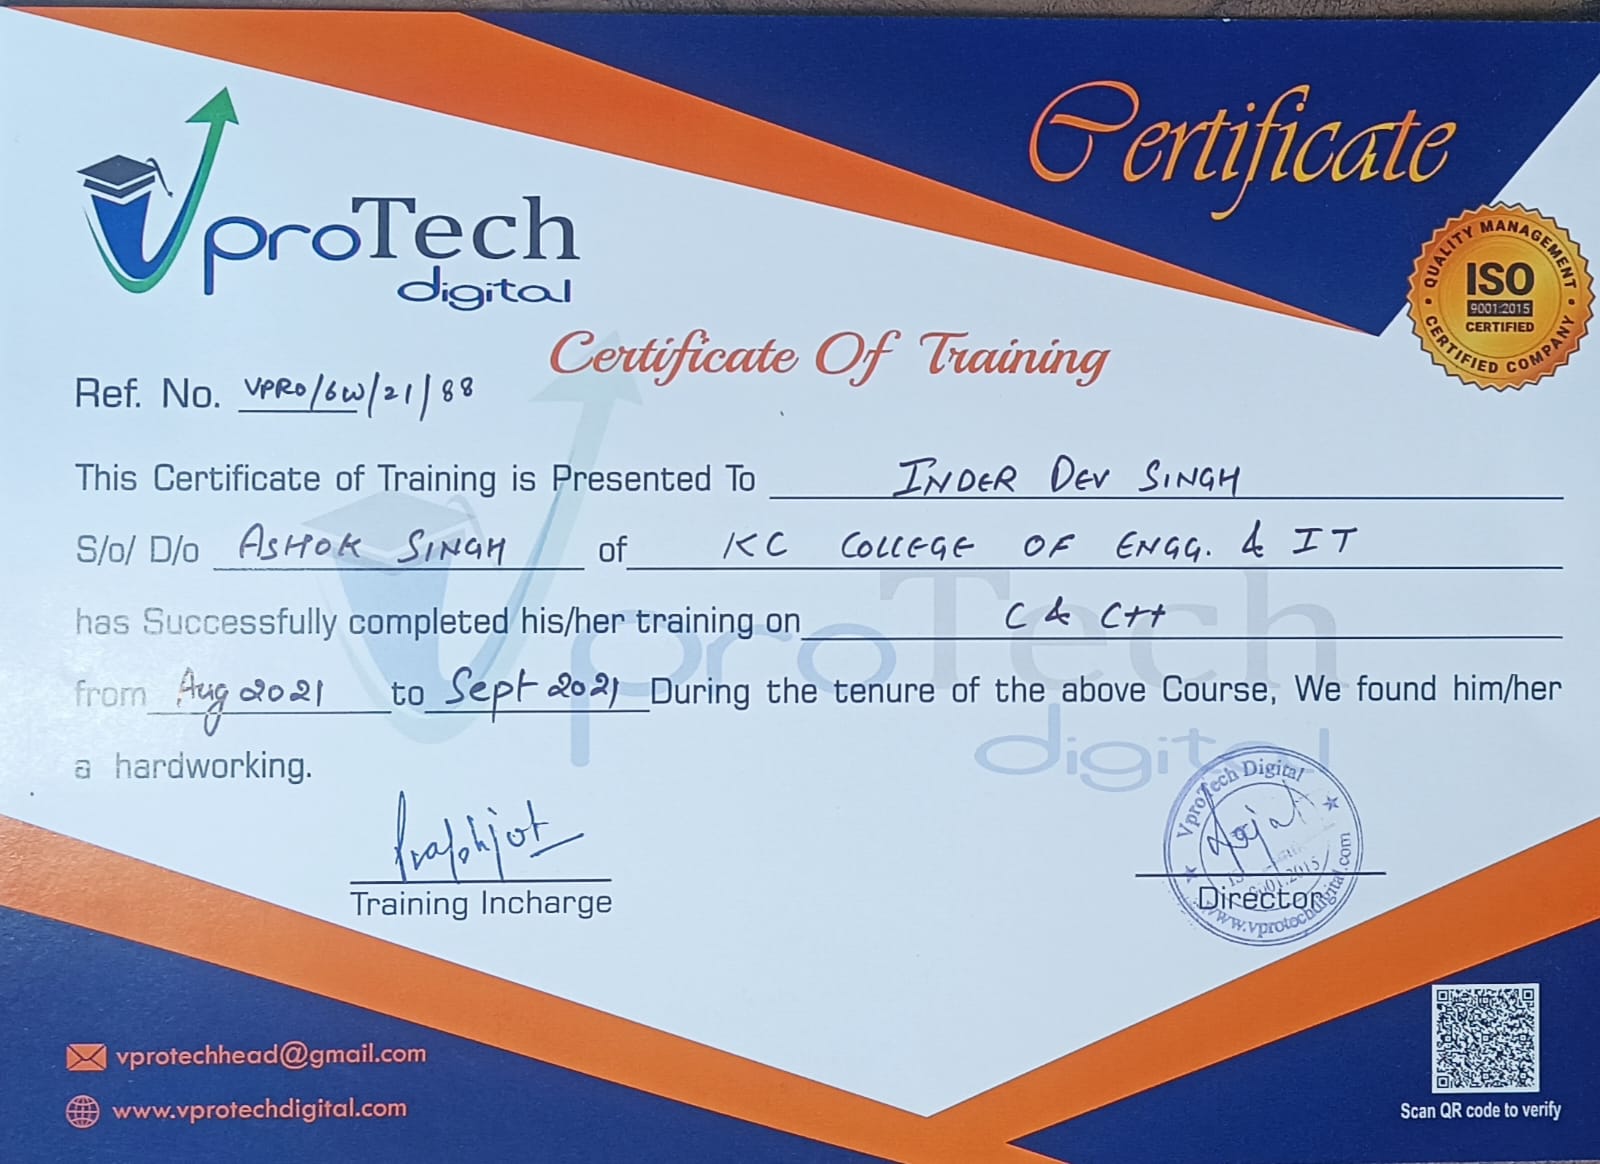 Certificate
VproTech
digital
QUALITY MANAGEMENT
ISO
9001:2015
CERTIFIED
CERTIFIED COMPANY
Certificate Of Training
Ref. No. VPRO/6W/21/88
This Certificate of Training is Presented To INDER DEV SINGH
S/o/ D/o ASHOK SINGH of KC COLLEGE OF ENGG. & IT
has Successfully completed his/her training on C & C++
from Aug 2021 to Sept 2021 During the tenure of the above Course, We found him/her
a hardworking.
VproTech Digital
9001:2015
www.vprotechdigital.com
Prabhjot
Training Incharge
Director
vprotechhead@gmail.com
www.vprotechdigital.com
Scan QR code to verify
VproTech
digital